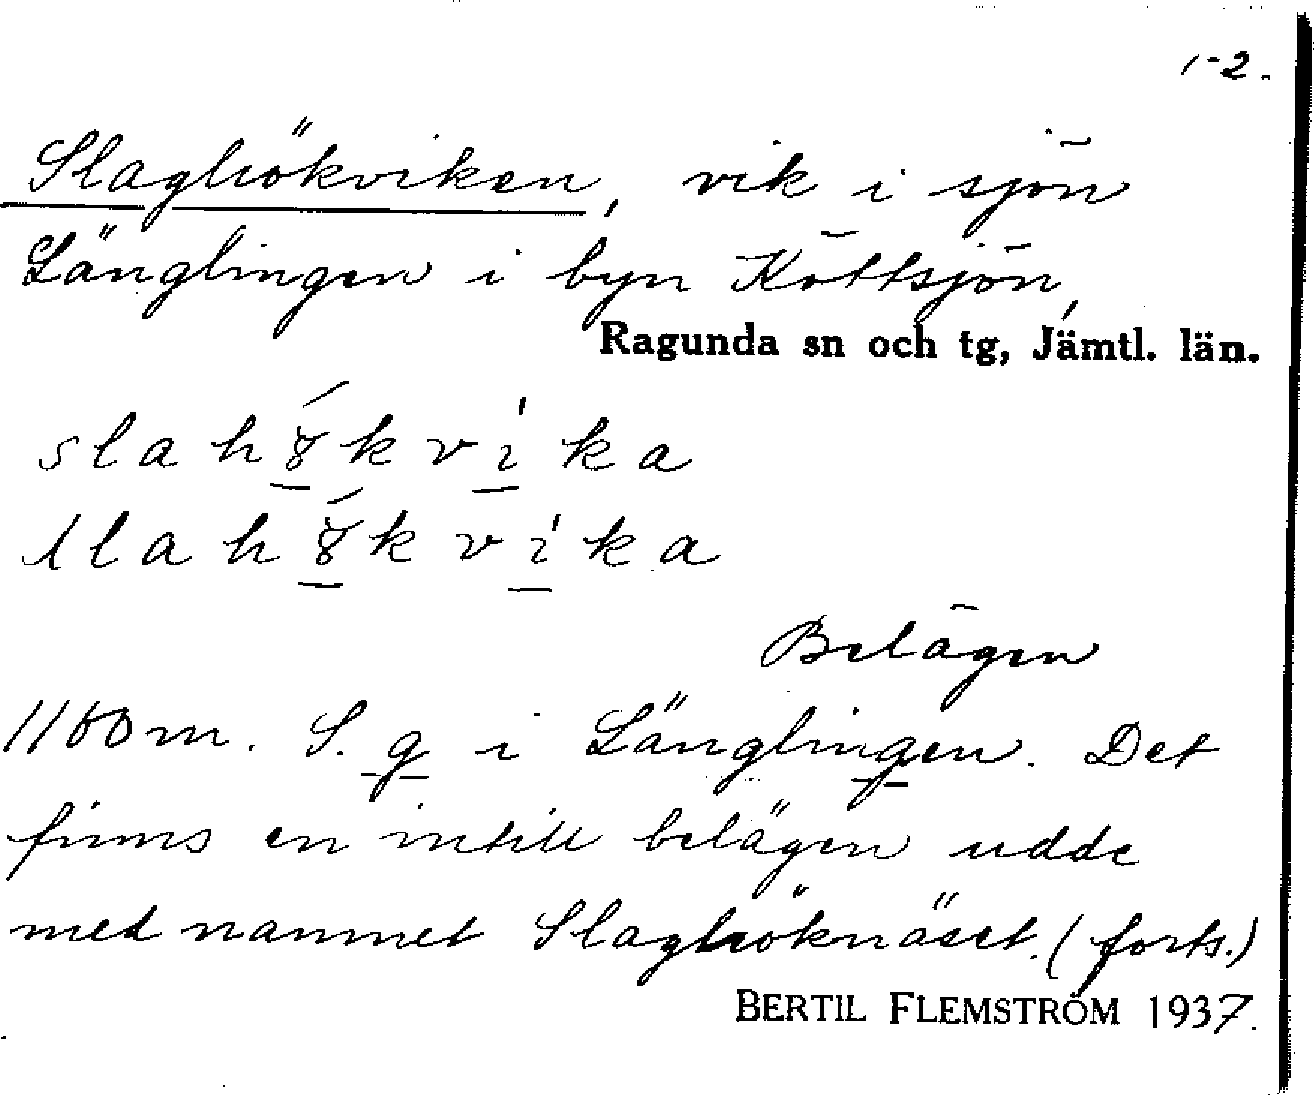 1-2.
Slaghökviken, vik i sjön
Länglingen i byn Köttsjön,
Ragunda sn och tg, Jämtl. län.
Belägen
1160 m. S. g i Länglingen. Det
finns en intill belägen udde
med namnet Slaghöknäset. (forts.)
BERTIL FLEMSTRÖM 1937.